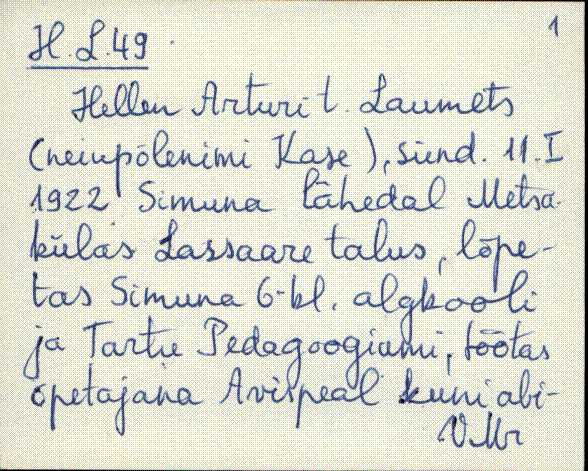 1
H. L. 49.
Hellen Arturi t. Laumets
(neiupõlenimi Kase), sünd. 11. I
1922 Simuna lähedal Metsa-
külas Lassaare talus, lõpe-
tas Simuna 6-kl. algkooli
ja Tartu Pedagoogiumi, töötas
õpetajana Avispeal kuni abi-
V. Mr